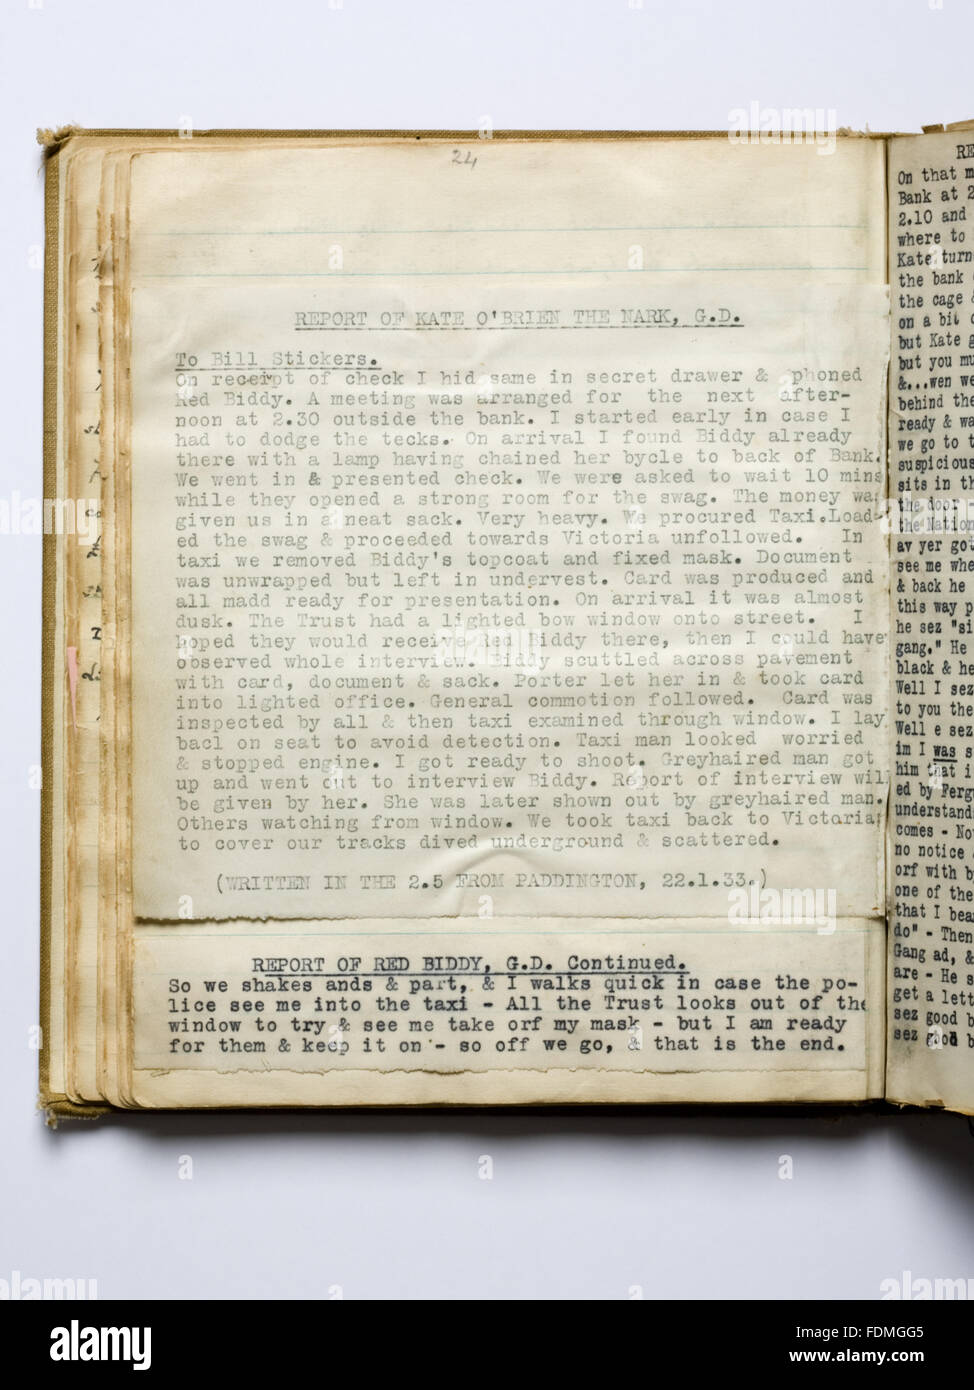 24
REPORT OF KATE O'BRIEN THE NARK, G.D.
To Bill Stickers.
On receipt of check I hid same in secret drawer & phoned
Red Biddy. A meeting was arranged for the next after-
noon at 2.30 outside the bank. I started early in case I
had to dodge the tecks. On arrival I found Biddy already
there with a lamp having chained her bycle to back of Bank.
We went in & presented check. We were asked to wait 10 mins
while they opened a strong room for the swag. The money was
given us in a neat sack. Very heavy. We procured Taxi.Load-
ed the swag & proceeded towards Victoria unfollowed. In
taxi we removed Biddy's topcoat and fixed mask. Document
was unwrapped but left in undervest. Card was produced and
all madd ready for presentation. On arrival it was almost
dusk. The Trust had a lighted bow window onto street. I
hoped they would receive Red Biddy there, then I could have
observed whole interview. Biddy scuttled across pavement
with card, document & sack. Porter let her in & took card
into lighted office. General commotion followed. Card was
inspected by all & then taxi examined through window. I lay
bacl on seat to avoid detection. Taxi man looked worried
& stopped engine. I got ready to shoot. Greyhaired man got
up and went out to interview Biddy. Report of interview will
be given by her. She was later shown out by greyhaired man.
Others watching from window. We took taxi back to Victoria
to cover our tracks dived underground & scattered.
(WRITTEN IN THE 2.5 FROM PADDINGTON, 22.1.33.)
REPORT OF RED BIDDY, G.D. Continued.
So we shakes ands & part, & I walks quick in case the po-
lice see me into the taxi - All the Trust looks out of the
window to try & see me take orf my mask - but I am ready
for them & keep it on - so off we go, & that is the end.
RE
On that m
Bank at 2
2.10 and
where to
Kate turn
the bank
the cage &
on a bit o
but Kate g
but you mu
&...wen we
behind the
ready & wa
we go to t
suspicious
sits in th
the door
the Nation
av yer got
see me whe
& back he
this way p
he sez "si
gang." He
black & he
Well I sez
to you the
Well e sez
im I was s
him that i
ed by Ferg
understand
comes - No
no notice
orf with b
one of the
that I bea
do" - Then
Gang ad, &
are - He s
get a lett
sez good b
sez good b
alamy
Image ID: FDMGG5
www.alamy.com